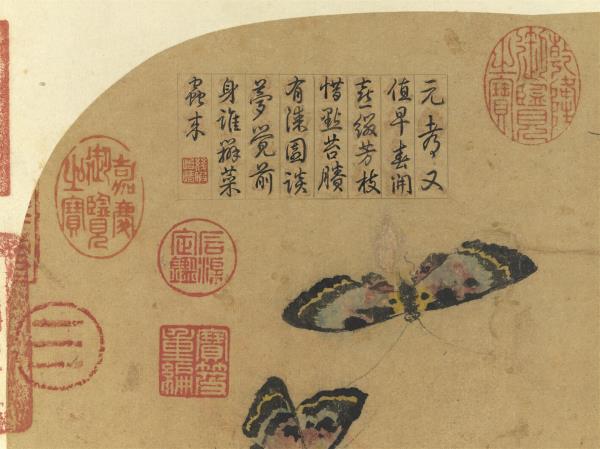 元 又
值早春開
喜綴芳枝
惜點苔賸
有漆園談
夢覺前
身誰辨菜
蟲來
乾隆御覽之寶
嘉慶御覽之寶
石渠定鑑
寶笈重編